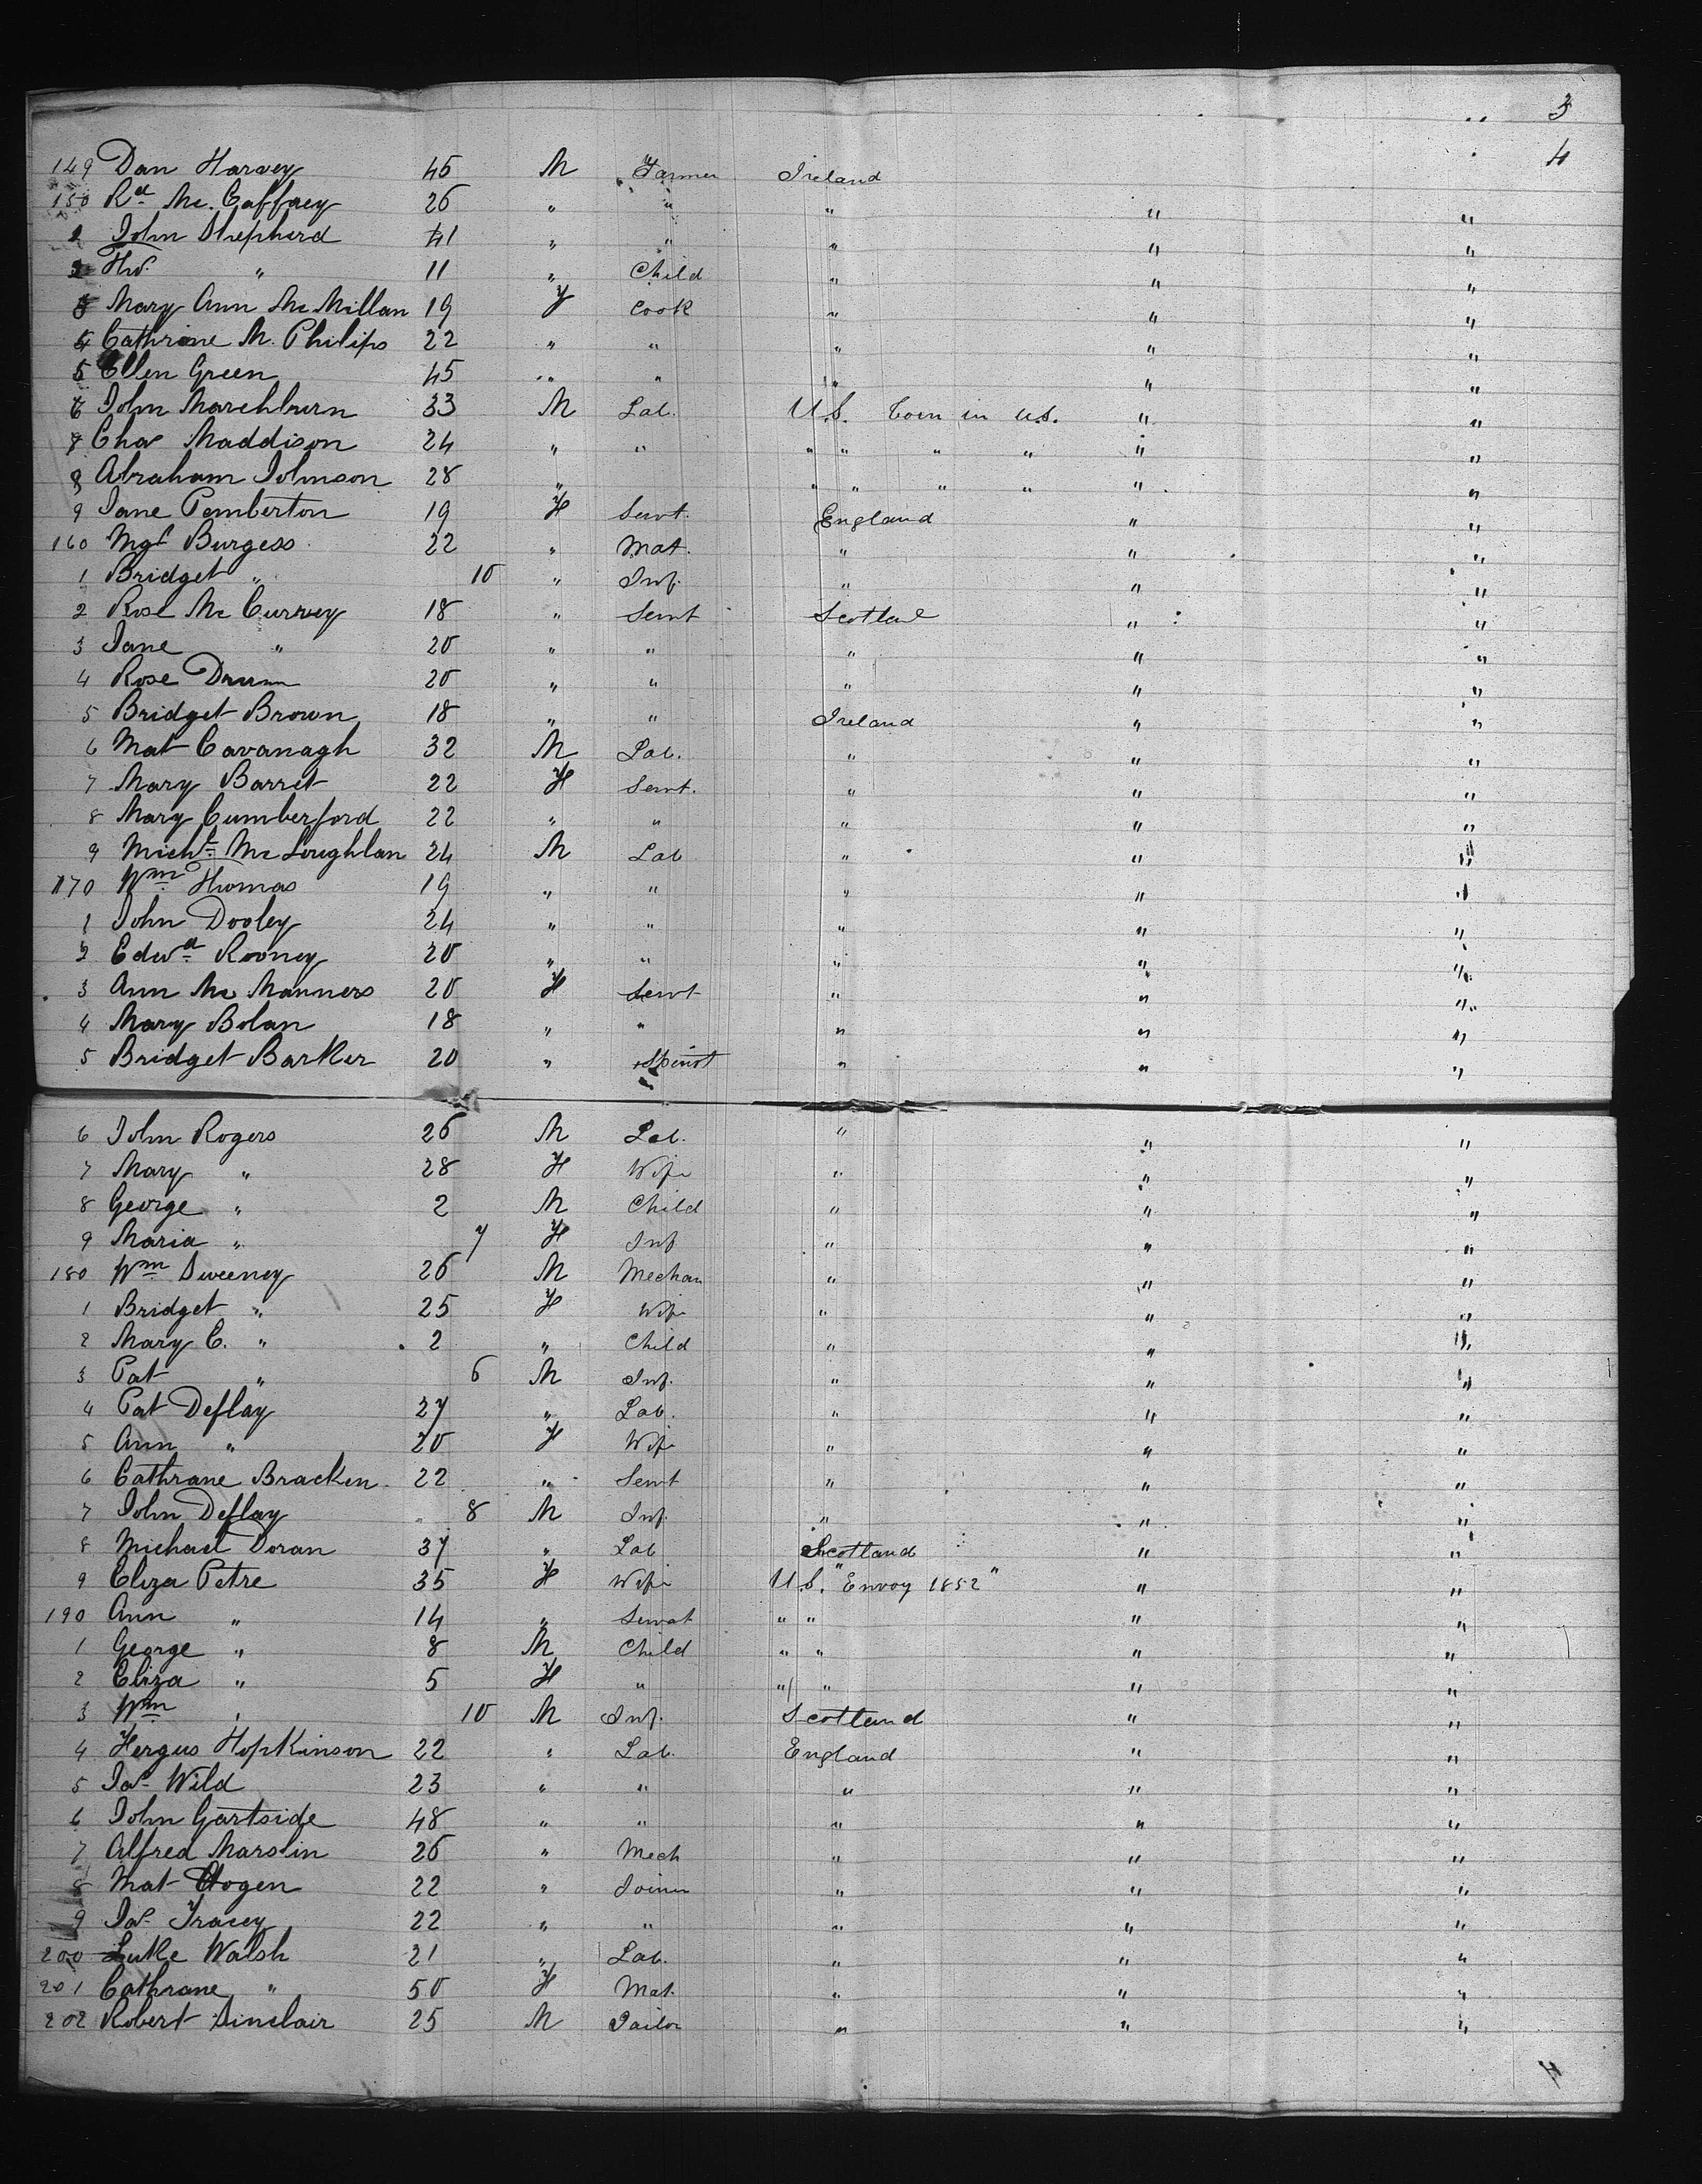 3
4
149 Dan Harvey 45 M Farmer Ireland
150 Rd Mc. Caffrey 26 " " " " "
1 John Shepherd 41 " " " " "
2 " 11 " Child " " "
3 Mary Ann McMillan 19 F Cook " " "
4 Cathrine M. Philips 22 " " " " "
5 Ellen Green 45 " " " " "
6 John Marchburn 33 M Lab. U.S. born in U.S. " "
7 Chas Maddison 24 " " " " " " " "
8 Abraham Johnson 28 " " " " " " "
9 Jane Pemberton 19 F Servt. England " "
160 Mgt Burgess 22 " Mat. " " "
1 Bridget " 10 " Inf. " " "
2 Rose Mc Currey 18 " Servt Scotland " "
3 Jane " 20 " " " " "
4 Rose Drum 20 " " " " "
5 Bridget Brown 18 " " Ireland " "
6 Mat Cavanagh 32 M Lab. " " "
7 Mary Barret 22 F Servt. " " "
8 Mary Cumberford 22 " " " " "
9 Michl Mc Loughlan 24 M Lab " " "
170 Wm Thomas 19 " " " " "
1 John Dooley 24 " " " " "
2 Edwd Rooney 20 " " " " "
3 Ann Mc Manners 20 F Servt " " "
4 Mary Bolan 18 " " " " "
5 Bridget Barker 20 " " " "
6 John Rogers 26 M Lab. " " "
7 Mary " 28 F Wife " " "
8 George " 2 M Child " " "
9 Maria " 7 F Inf " " "
180 Wm Sweeney 26 M Mechan " " "
1 Bridget " 25 F Wife " " "
2 Mary C. " 2 " Child " " "
3 Pat " 6 M Inf. " " "
4 Pat Deflay 27 " Lab. " " "
5 Ann " 20 F Wife " " "
6 Cathrane Bracken 22 " Servt " " "
7 John Deflay 8 M Inf. " " "
8 Michael Doran 37 " Lab Scotland " "
9 Eliza Petre 35 F Wife U.S. "Envoy 1852" " "
190 Ann " 14 " Servat " " " "
1 George " 8 M Child " " " "
2 Eliza " 5 F " " " " "
3 Wm " 10 M Inf. Scotland " "
4 Fergus Hopkinson 22 " Lab. England " "
5 Jas Wild 23 " " " " "
6 John Gartside 48 " " " " "
7 Alfred Marslin 26 " Mech " " "
8 Mat Hogen 22 " Joiner " " "
9 Jas Tracey 22 " " " " "
200 Luke Walsh 21 " Lab. " " "
201 Cathrane " 50 F Mat. " " "
202 Robert Sinclair 25 M Tailor " " "
4